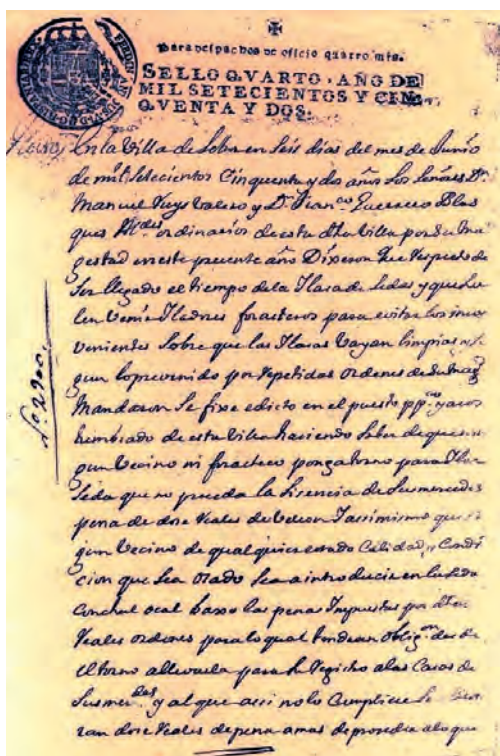 Para despachos de oficio quatro mrs.
SELLO QVARTO, AÑO DE
MIL SETECIENTOS Y CIN
QVENTA Y DOS.
En la Villa de en seis dias del mes de Junio
de mil setecientos Cinquenta y dos años los señores Dn
Manuel Ruys Valero y Dn Franco Guerrero Blas
ques ordinarios de esta dha Villa por su ma
gestad en este presente año Dixeron que respecto de
ser llegado el tiempo de la de sedas y que sue
len venir forasteros para evitar los incon
venientes sobre que las vayan limpias se
gun lo prevenido por repetidas ordenes de su mag
Mandaron se fixe edicto en el puesto ppco y acos
tumbrado de esta Villa haciendo saber de que nin
gun vecino ni forastero ponga torno para
seda que no preceda la lisencia de sus mercedes
pena de dose reales de vellon y assimismo que nin
gun vecino de qualquier estado calidad, o condi
cion que sea osado sea a introducir en la seda
baxo las penas impuestas por dhas
reales ordenes para lo qual tendran obligon
el torno a llevarla para el registro a las Casas de
sus mersdes y al que assi no lo cumpliere se le
ran dose reales de pena a mas de proseder a lo que